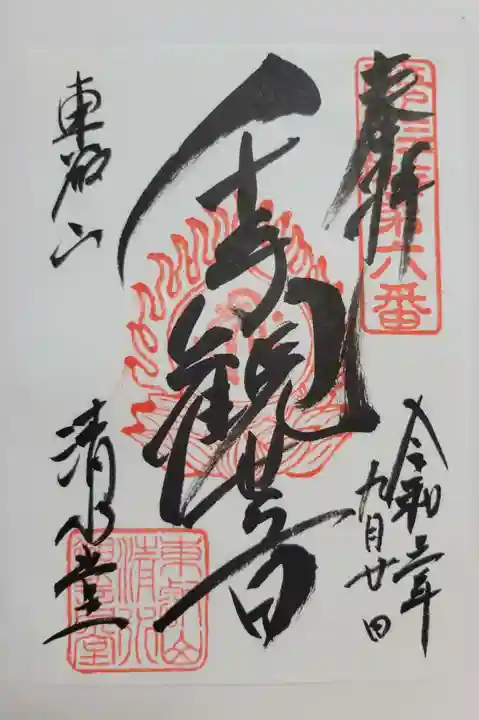 奉拝
第六番
千手觀世音
東叡山
清水堂
令和 年
九月廿日
東叡山
清水
觀音堂